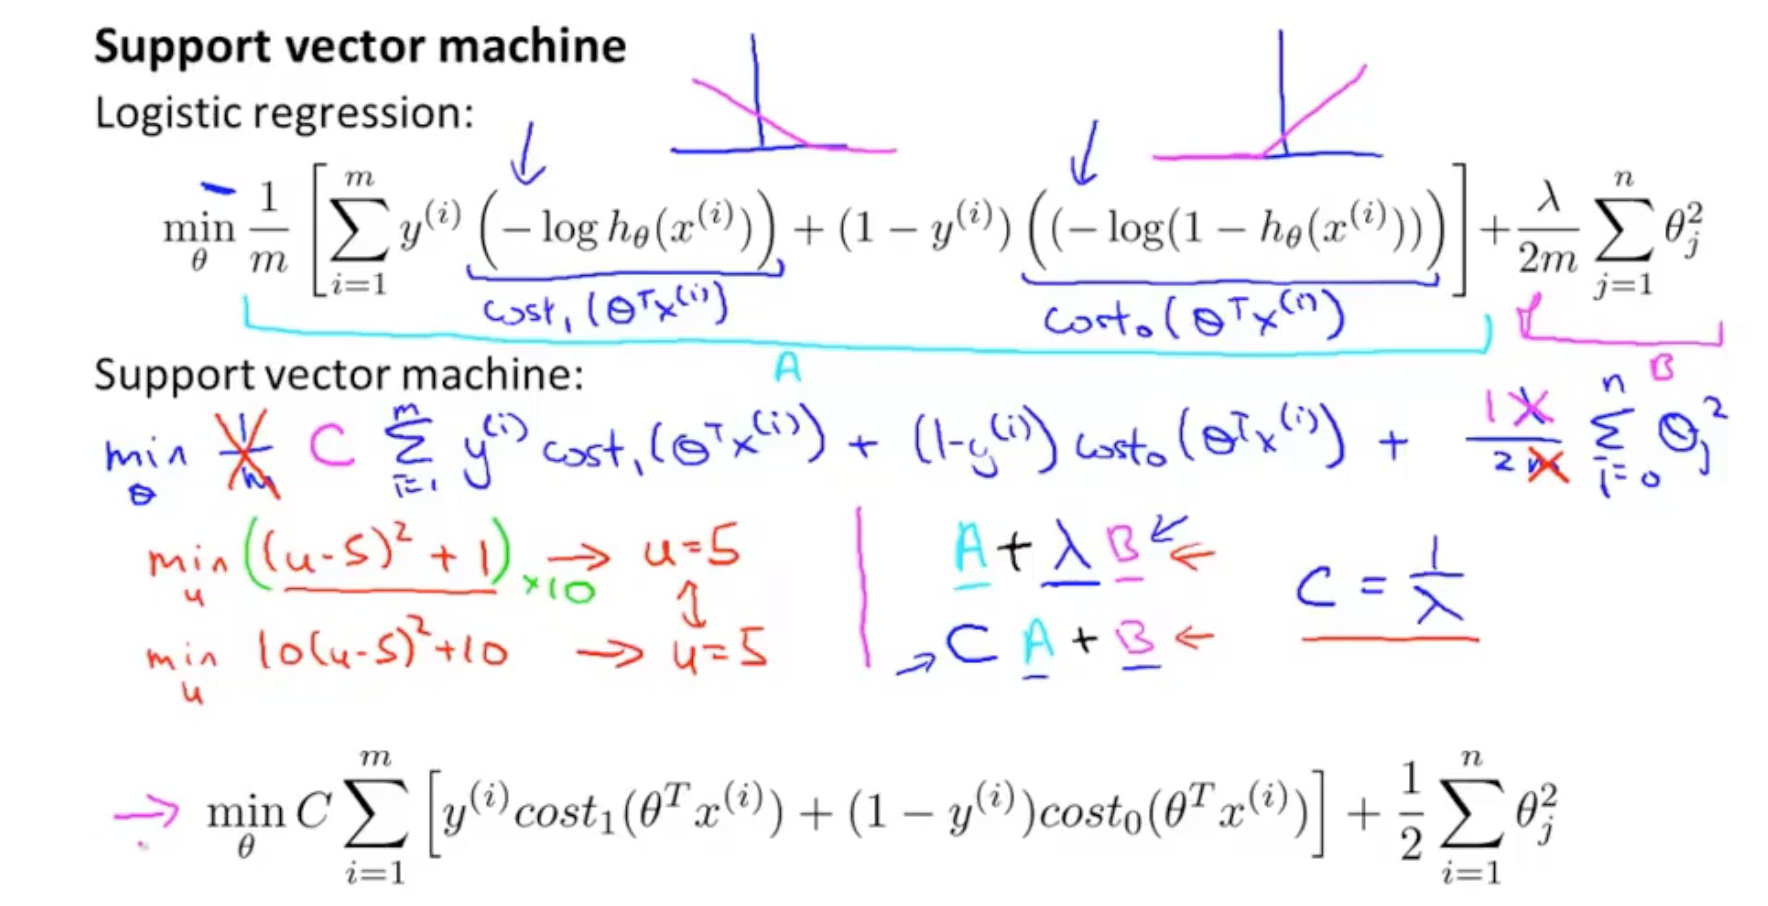 Support vector machine
Logistic regression:
min_θ 1/m [ ∑_{i=1}^{m} y^{(i)} ( − log h_θ(x^{(i)}) ) + (1 − y^{(i)}) ( (− log(1 − h_θ(x^{(i)}))) ) ] + λ/2m ∑_{j=1}^{n} θ_j^2
cost₁(θᵀx^{(i)}) cost₀(θᵀx^{(i)})
A B
Support vector machine:
min_θ 1/m C ∑_{i=1}^{m} y^{(i)} cost₁(θᵀx^{(i)}) + (1-y^{(i)}) cost₀(θᵀx^{(i)}) + 1 λ/2m ∑_{i=0}^{n} θ_j^2
min_u ((u-5)² + 1) ×10 → u=5 A + λ B ← C = 1/λ
min_u 10(u-5)²+10 → u=5 → C A + B ←
→ min_θ C ∑_{i=1}^{m} [ y^{(i)} cost₁(θ^T x^{(i)}) + (1 − y^{(i)}) cost₀(θ^T x^{(i)}) ] + 1/2 ∑_{i=1}^{n} θ_j^2